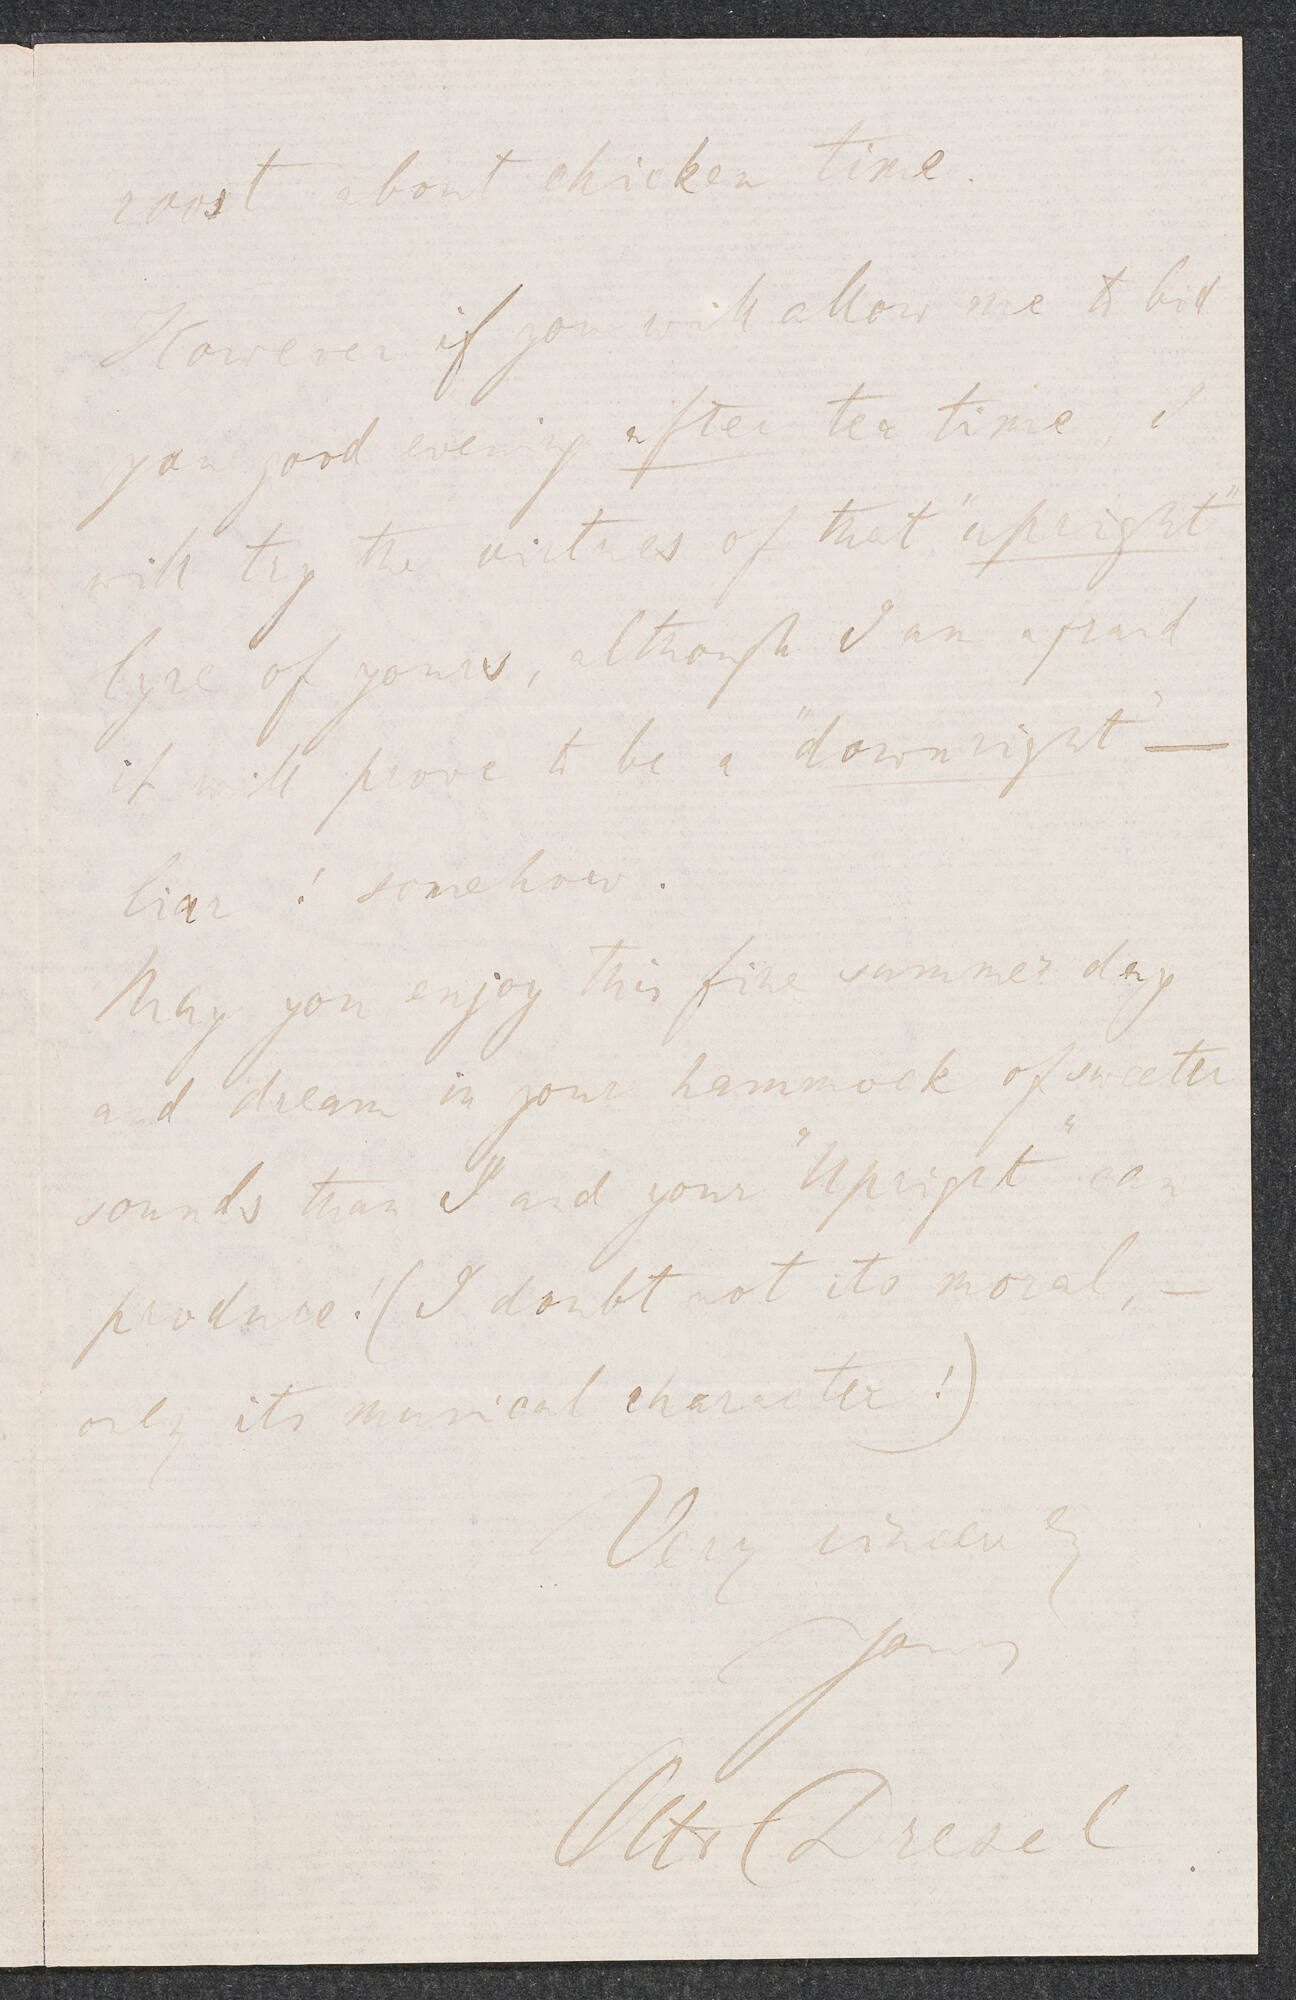 roost about chicken time.
However if you will allow me to bid
you good evening after tea time, I
will try the virtues of that "upright"
lyre of yours, although I am afraid
it will prove to be a "downright" —
liar ! somehow.
May you enjoy this fine summer day
and dream in your hammock of sweeter
sounds than I and your "Upright" can
produce! (I doubt not its moral, —
only its musical character!)
Very sincerely
yours
Otto Dresel.